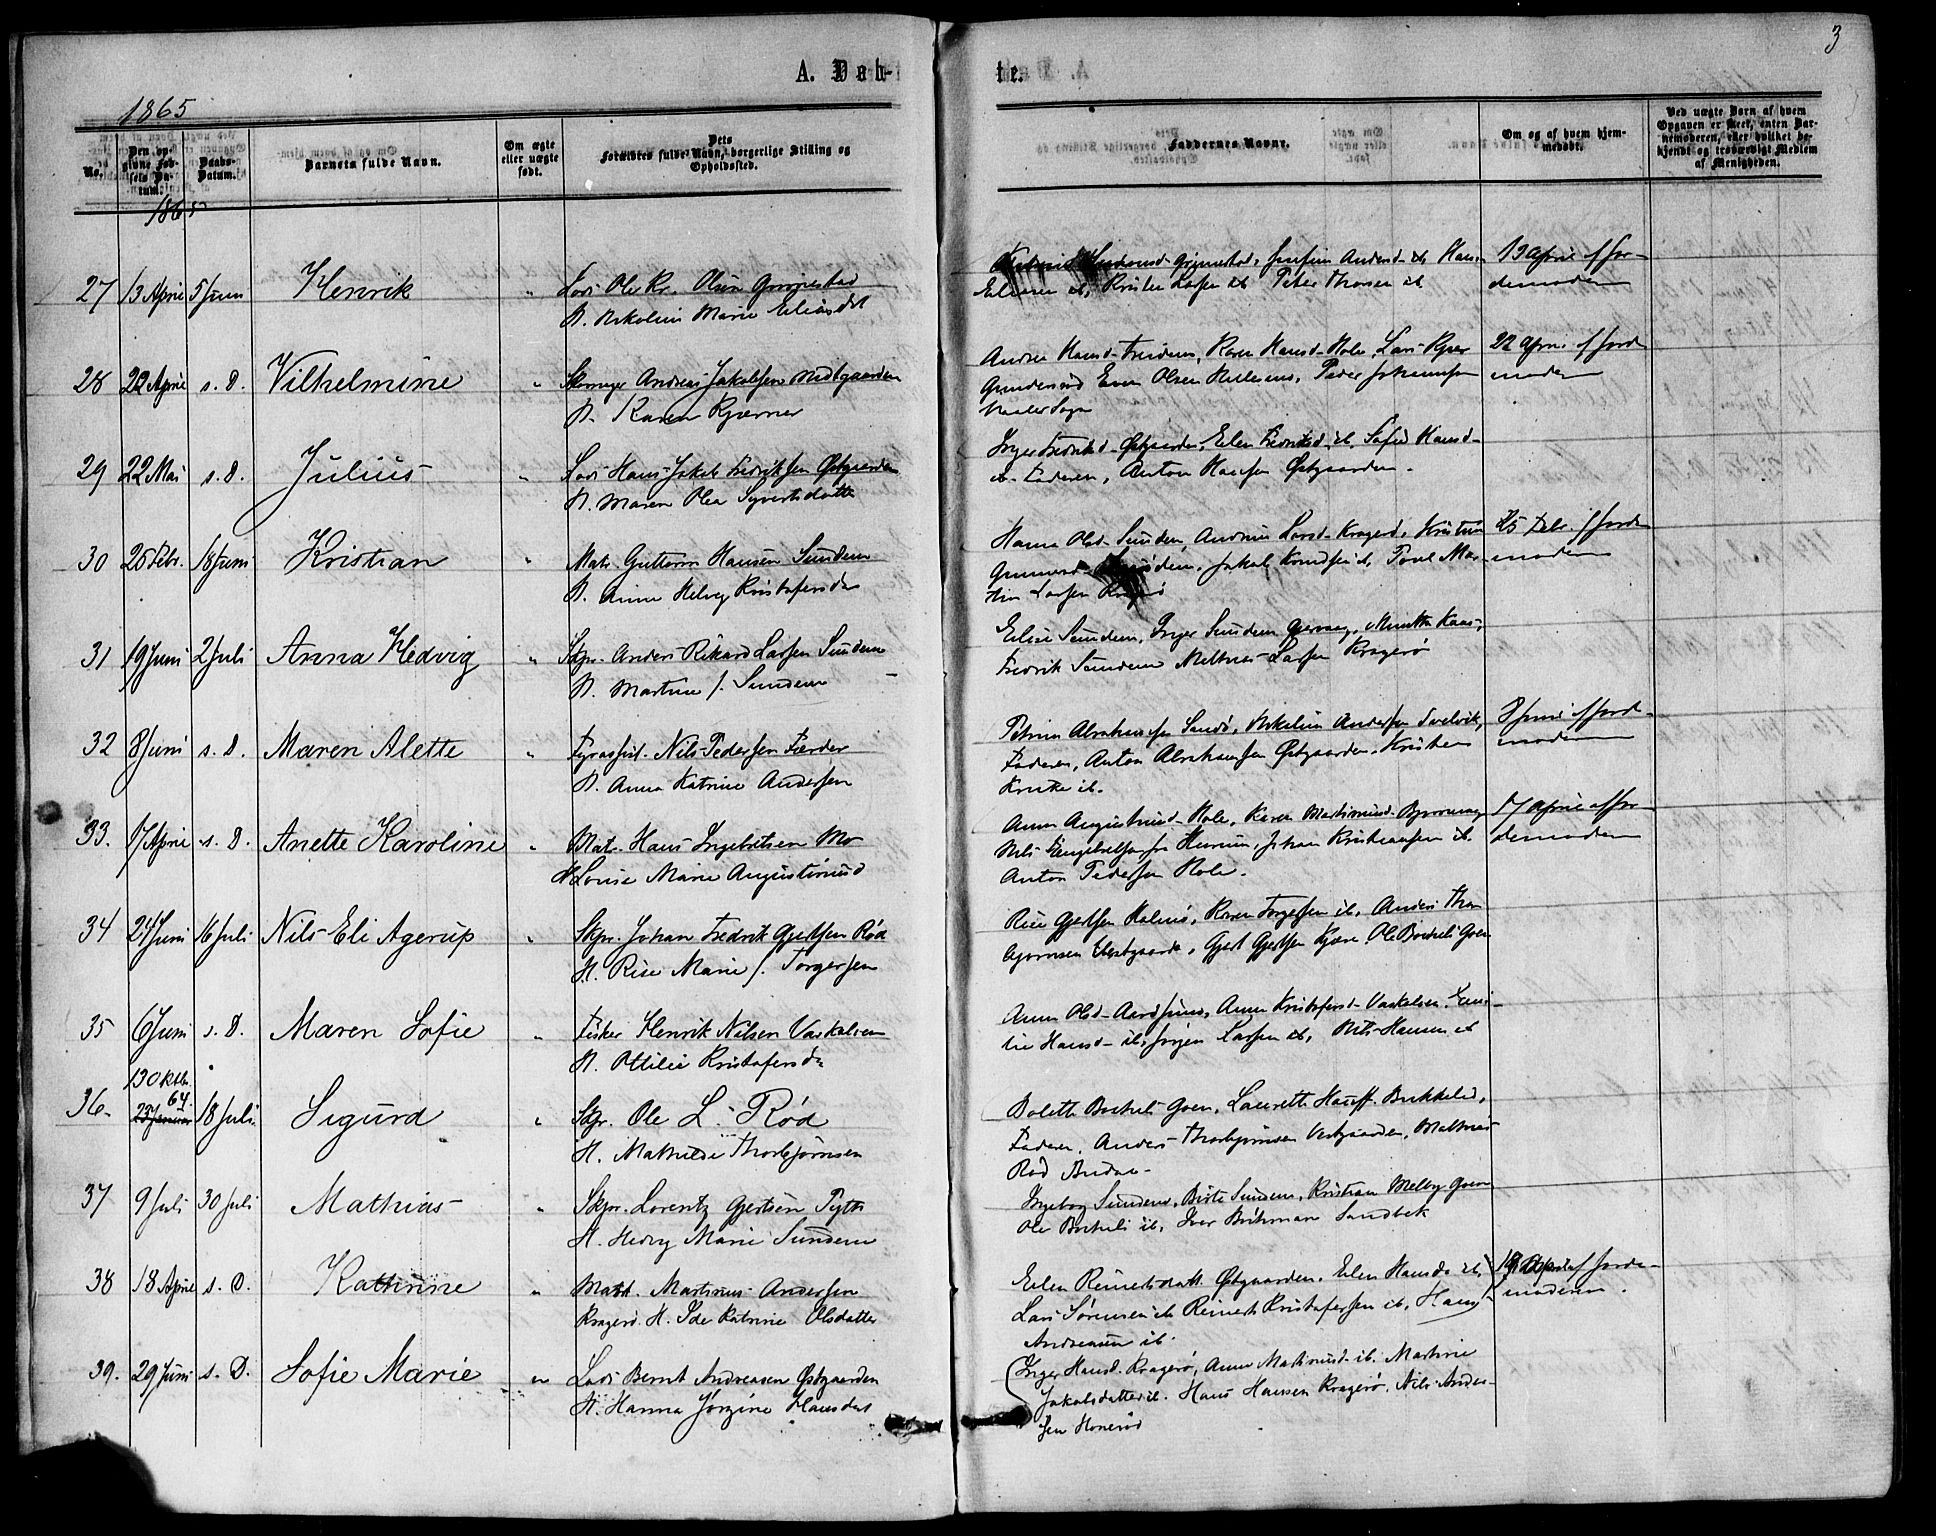 3
A. Døb-
te.
1865
No.
Den opgivne Fødsels Datum.
Daabs-Datum.
Barnets fulde Navn.
Om ægte eller uægte født.
Dets Forældres fulde Navn, borgerlige Stilling og Opholdssted.
Faddernes Navne.
Om og af hvem hjemmedøbt.
Ved uægte Barn af hvem Opgaven er skeet, enten Barnemoderen, eller hvilket bekjendt og troværdigt Medlem af Menigheden.
1865
27 13 April 5 Juni Henrik " Lods Ole Kr. Olsen Grimestad
H. Nikoline Marie Eliasdt
Grimestad,
Eliasen ib, Kristen Larsen ib Peter Thorsen ib
13 April af Jor-
demoderen
28 22 April s. D. Vilhelmine " Andreas Jakobsen Medgaarden
H. Karen Kjærner
Andrea Hansd. Sundene, Karen Hansd. Hole, Lars Kjær
Even Olsen Peder Johannsen
Naalø Sogn
22 April af Jord-
moderen
29 22 Mai s. D. Julius " Lods Hans Jakob Fredriksen Østgaarden
H. Maren Olea Syvertsdatter
Inger Fredriksd. Østgaarden, Elen Fredriksd ib, Sofie Hansd.
ib. Faderen, Anton Hansen Østgaarden.
30 25 Febr. 18 Juni Kristian " Matr. Guttorm Hansen Sundene
H. Anne Helvig Kristofersda
Hanna Olsd. Sundene, Andrine Larsd. Kragerø, Kristine
Gunnersd. Jakob Knudsen ib, Poul Mar-
tin Larsen Kragerø
25 Febr. af Jord
moderen
31 19 Juni 2 Juli Anna Hedvig " Skpr. Anders Rikard Larsen Sundene
H. Martine f. Sundene
Elise Sundene, Inger Sundene
Fredrik Sundene Mathias Larsen Kragerø
32 8 Juni s. D. Maren Alette " Fyrassist. Nils Pedersen Færder
H. Anna Katrine Andersen
Petrine Abrahamsen Sandø, Nikoline Andersen Svelvik,
Faderen, Anton Abrahamsen Østgaarden, Kristen
Kruke ib.
8 Juni af Jord-
moderen
33. 17 April s. D. Anette Karoline " Matr. Hans Ingebretsen Mo
H. Louise Marie Augustinusd
Anne Augustinusd. Hole, Karen Martinusd.
Nils Engebretsen fra Hurum, Johan Kristiansen ib.
Anton Pedersen Hole.
17 April af Jor-
demoderen
34 24 Juni 16 Juli Nils Eli Agerup " Skpr. Johan Fredrik Gjertsen Rød
H. Rise Marie f. Torgersen
Rise Gjertsen Holmø, Karen Torgersen ib, Anders Thor-
bjørnsen Vestgaarde, Gjert Gjertsen Kjære, Ole Bockeli Goen
35 6 Juni s. D. Maren Sofie " Fisker Henrik Nilsen Vaskalven
H. Ottilie Kristofersda
Anne Olsd. Aarøsund, Anne Kristofersd. Vaskalven, Emi-
lie Hansd. ib, Jørgen Larsen ib, Nils Hansen ib
36. 13 Oktbr. 64. 23 Januar 18 Juli Sigurd " Skpr. Ole L. Rød
H. Mathilde Thorbjørnsen
Bolette Bockeli Goen, Laurette Hauff
Faderen, Anders Thorbjørnsen Vestgaarden, Mathias
Rød
37 9 Juli 30 Juli Mathias " Skpr. Lorentz Gjertsen Pyth
H. Hedvig Marie Sundene
Ingeborg Sundene, Birte Sundene, Kristian Melby Goen
Ole Bockeli ib, Iver Bøhmann Sandbek
38 18 April s. D. Kathrine " Matr. Martinus Andersen
Kragerø. H. Ide Katrine Olsdatter
Elen Reinertsdatt. Østgaarden, Elen Hansda ib,
Lars Sørensen ib Reinert Kristofersen ib, Hans
Andreasen ib.
19 April af Jorde-
moderen.
39. 29 Juni s. D. Sofie Marie " Lods Bernt Andreasen Østgaarden
H. Hanna Jørgine Hansdat
Inger Hansd. Kragerø, Anne Martinusd. ib. Martine
Jakobsdatter ib. Hans Hansen Kragerø, Nils Ander-
sen Honerød